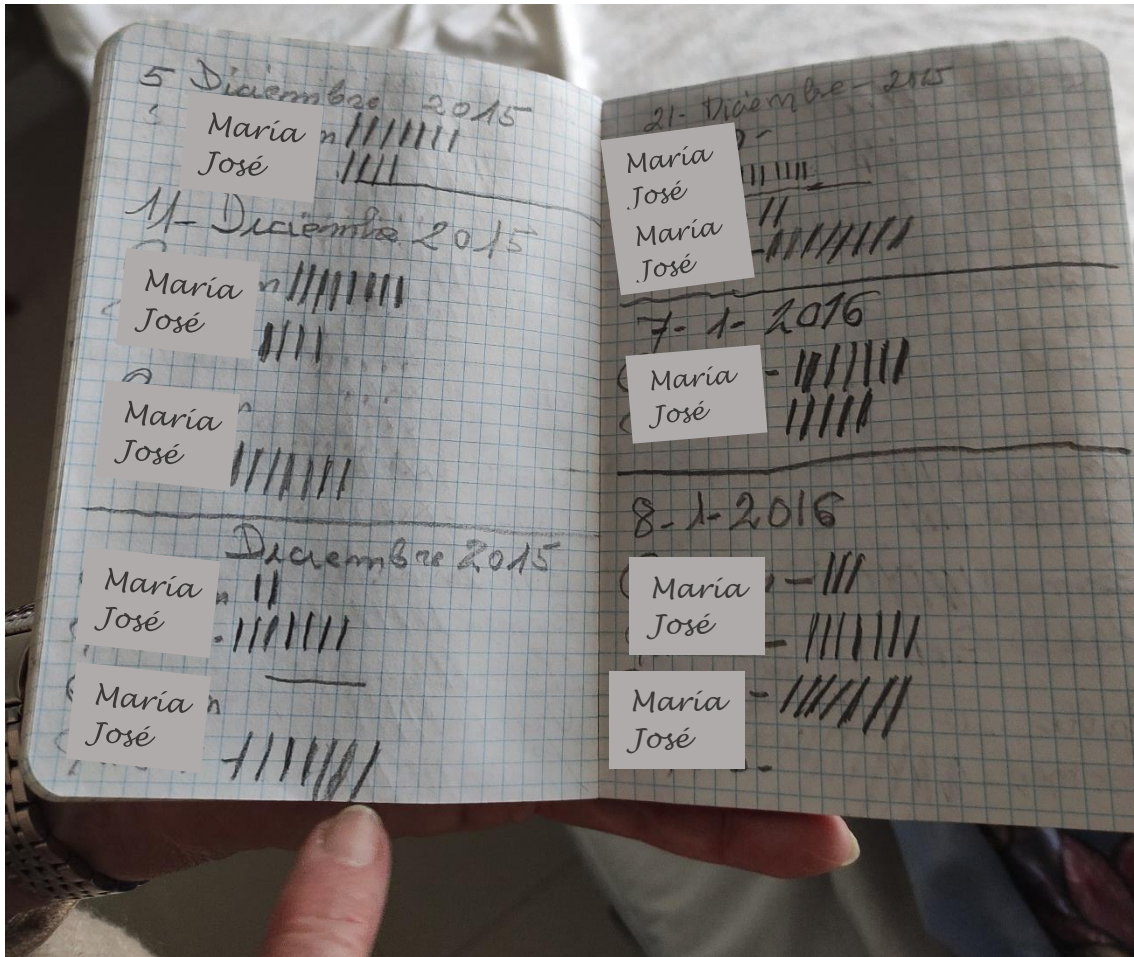 5 Diciembre 2015
María
José
11- Diciembre 2015
María
José
María
José
Diciembre 2015
María
José
María
José
21- Diciembre - 2015
María
José
María
José
7- 1- 2016
María
José
8-1-2016
María
José
María
José